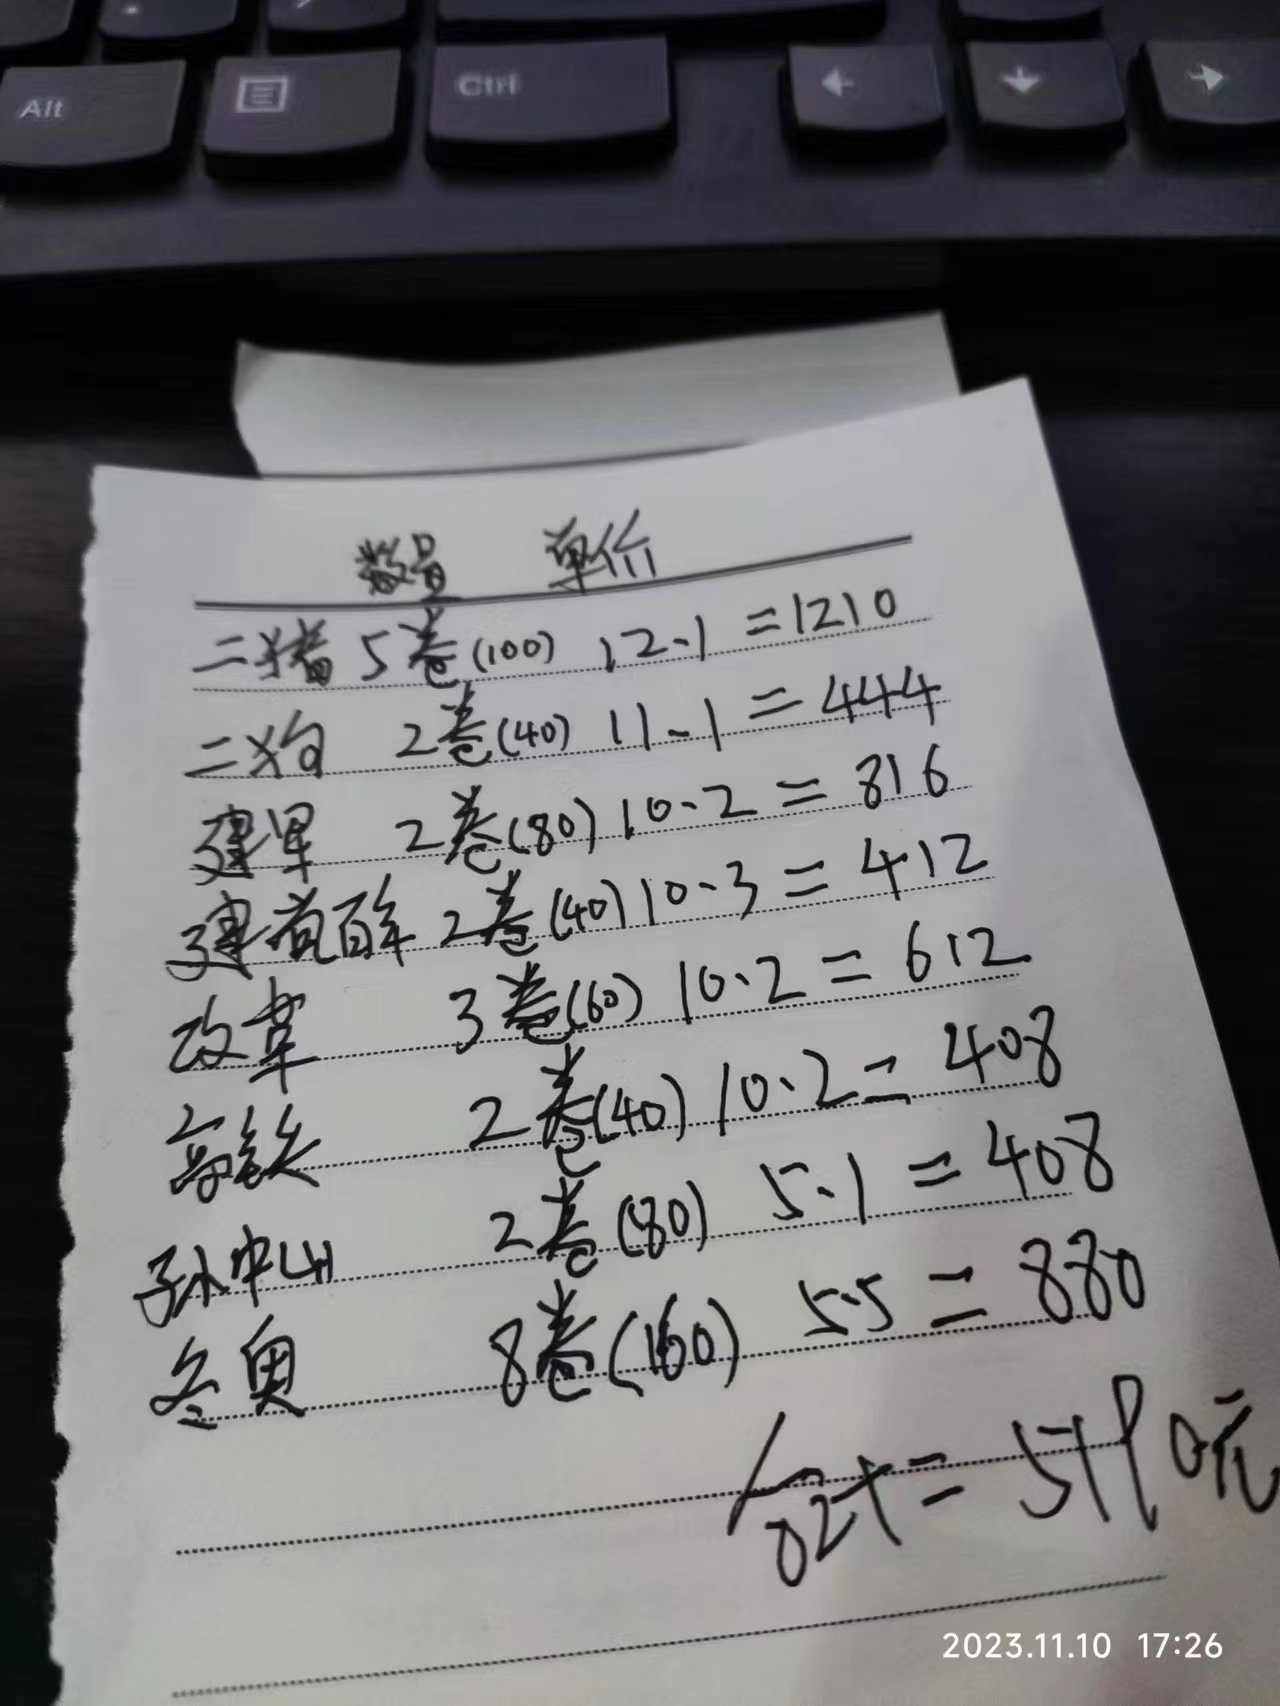 Alt Ctrl ← ↓ →
数量 单价
二猪 5卷(100) 12.1 =1210
二狗 2卷(40) 11-1 = 444
建军 2卷(80) 10.2 = 816
建党百年 2卷(40) 10.3 = 412
改革 3卷(60) 10.2 = 612
高铁 2卷(40) 10.2 = 408
孙中山 2卷(80) 5.1 = 408
冬奥 8卷(160) 5.5 = 880
合计= 5190元
2023.11.10 17:26